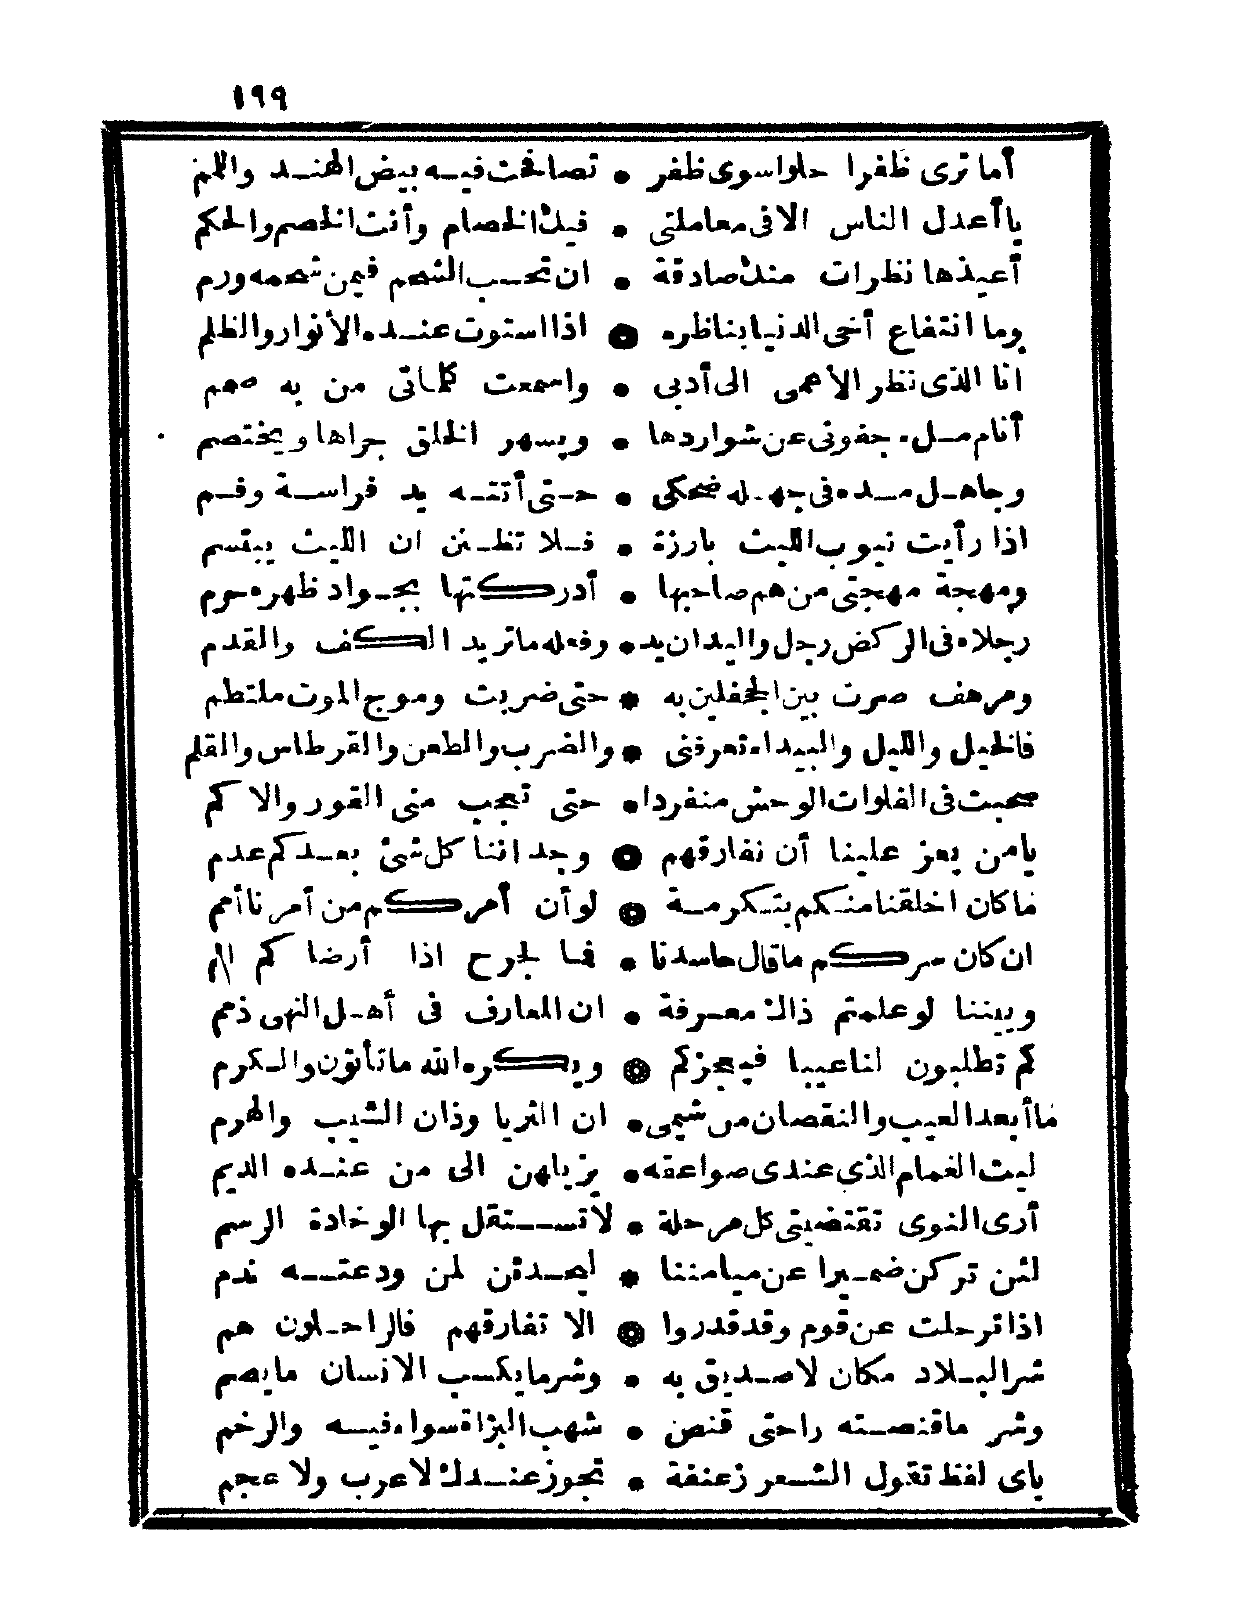 ١٩٩
أما ترى ظفرا حلوا سوى ظفر * تصافحت فيه بيض الهند واللمم
يا أعدل الناس الا فى معاملتى * فيك الخصام وأنت الخصم والحكم
أعيذها نظرات منك صادقة * ان تحسب الشحم فيمن شحمه ورم
وما انتفاع أخى الدنيا بناظره * اذا استوت عنده الأنوار والظلم
انا الذى نظر الأعمى الى أدبى * واسمعت كلماتى من به صمم
أنام ملء جفونى عن شواردها * ويسهر الخلق جراها ويختصم
وجاهل مده فى جهله ضحكى * حتى أتته يد فراسة وفم
اذا رأيت نيوب الليث بارزة * فلا تظنن ان الليث يبتسم
ومهجة مهجتى من هم صاحبها * أدركتها بجواد ظهره حرم
رجلاه فى الركض رجل واليدان يد * وفعله ما تريد الكف والقدم
ومرهف صرت بين الجحفلين به * حتى ضربت وموج الموت ملتطم
فالخيل والليل والبيداء تعرفنى * والضرب والطعن والقرطاس والقلم
صحبت فى الفلوات الوحش منفردا * حتى تعجب منى القور والاكم
يا من يعز علينا أن نفارقهم * وجداننا كل شئ بعدكم عدم
ما كان اخلقنا منكم بتكرمة * لو أن أمركم من أمرنا أمم
ان كان سركم ما قال حاسدنا * فما لجرح اذا أرضاكم الم
وبيننا لو علمتم ذاك معرفة * ان المعارف فى أهل النهى ذمم
كم تطلبون لنا عيبا فيعجزكم * ويكره الله ما تأتون والكرم
ما أبعد العيب والنقصان من شيمى * ان الثريا وذان الشيب والهرم
ليت الغمام الذى عندى صواعقه * يزيلهن الى من عنده الديم
أرى النوى تقتضيتى كل مرحلة * لا تستقل بها الوخادة الرسم
لئن تركن ضميرا عن ميامننا * ليحدثن لمن ودعته ندم
اذا ترحلت عن قوم وقد قدروا * الا تفارقهم فالراحلون هم
شر البلاد مكان لا صديق به * وشر ما يكسب الانسان ما يصم
وشر ما قنصته راحتى قنص * شهب البزاة سواء فيه والرخم
باى لفظ تقول الشعر زعنفة * تجوز عندك لا عرب ولا عجم